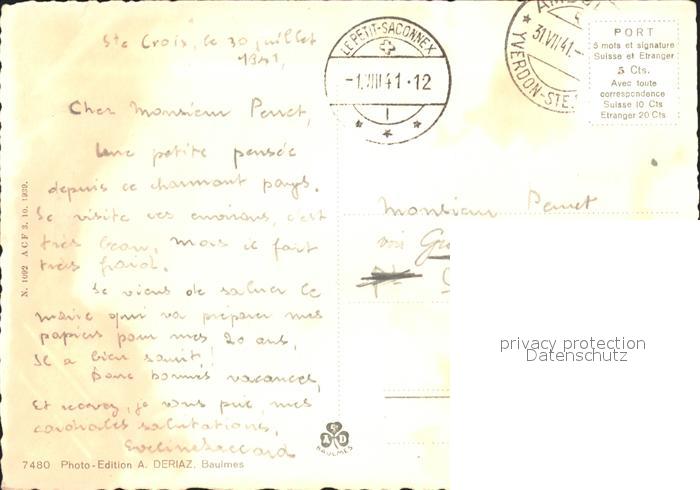 Ste Croix, le 30 juillet
1941,
Cher Monsieur Perret,
Une petite pensée
depuis ce charmant pays.
Je visite ces environs, c'est
très beau, mais il fait
très froid.
Je viens de saluer le
maire qui va préparer mes
papiers pour mes 20 ans,
Je a bien sourit,!
Donc bonnes vacances,
Et recevez, je vous prie, mes
cordiales salutations,
N. 1092 A C F 3. 10. 1939.
7480 Photo-Edition A. DERIAZ, Baulmes
LE PETIT-SACONNEX
-1.VIII 41.12
31.VII 41.-
YVERDON-STE.
PORT
5 mots et signature
Suisse et Etranger
5 Cts.
Avec toute
correspondence
Suisse 10 Cts
Etranger 20 Cts
Monsieur Perret
BAULMES
privacy protection
Datenschutz